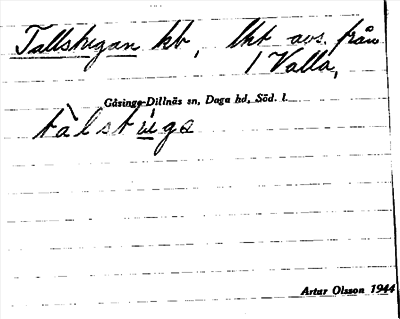 Tallstugan hb, lht avs. från
1 Valla,
Gåsinge-Dillnäs sn, Daga hd, Söd. l.
tàlstuga
Artur Olsson 1944